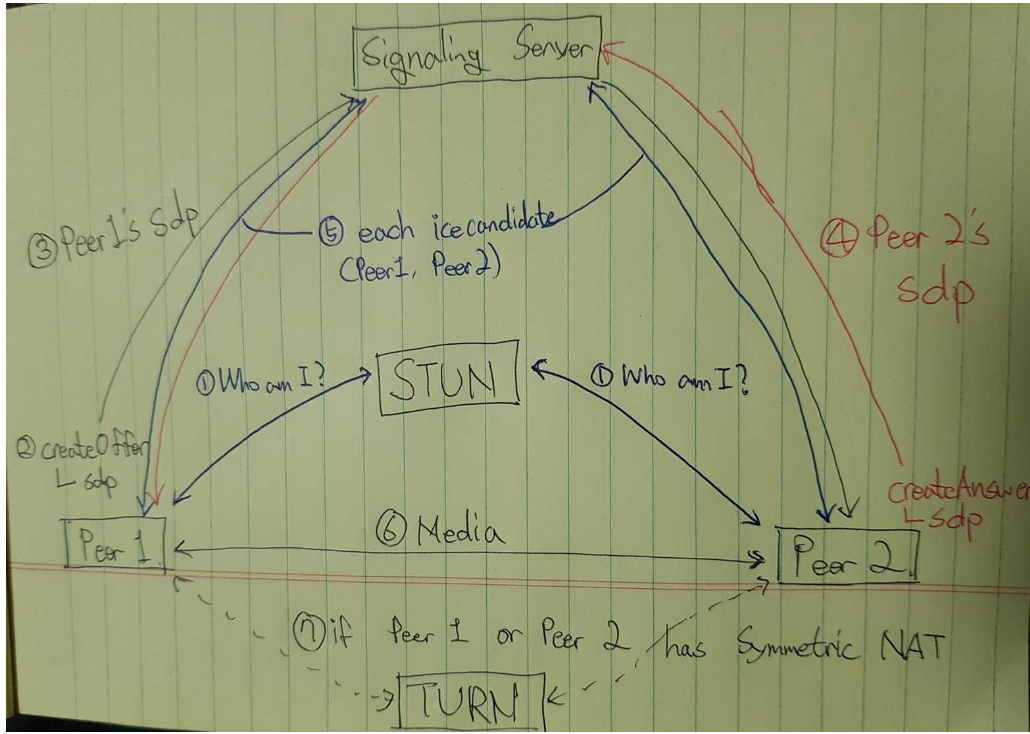 Signaling Server
③ Peer 1's sdp
⑤ each icecandidate
(Peer1, Peer2)
④ Peer 2's
sdp
① Who am I?
STUN
① Who am I?
② createOffer
└ sdp
createAnswer
└ sdp
Peer 1
⑥ Media
Peer 2
⑦ if Peer 1 or Peer 2 has Symmetric NAT
TURN